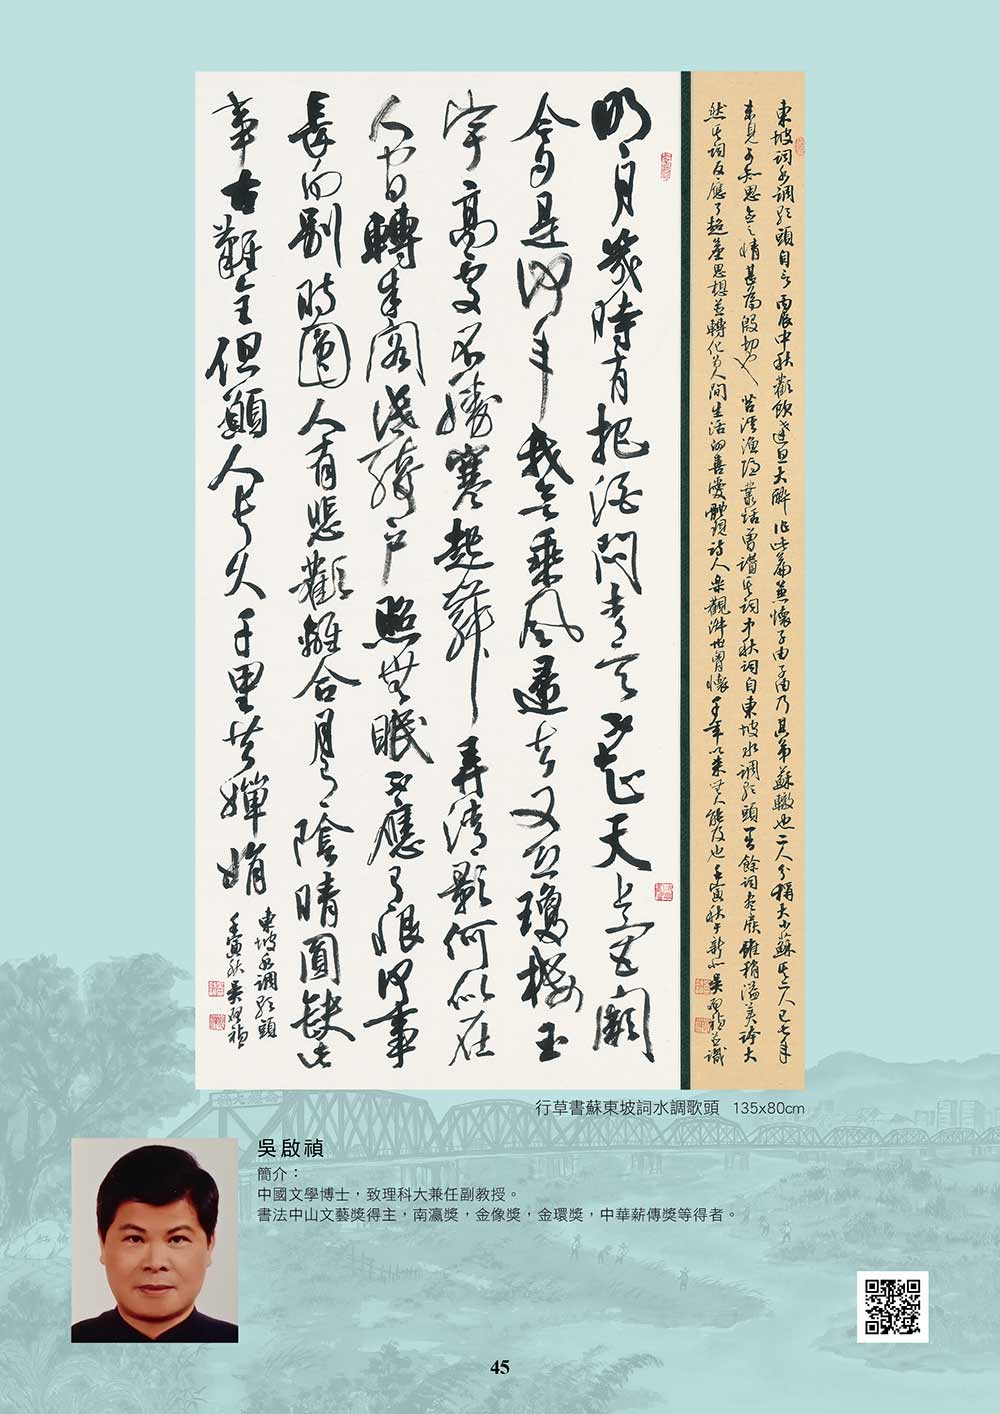 東坡詞水調歌頭自言丙辰中秋歡飲達旦大醉作此篇兼懷子由子由乃其弟蘇轍也二人分稱大小蘇其二人已七年
未見可知思念之情甚為殷切也苕溪漁隱叢話曾讚其詞中秋詞自東坡水調歌頭餘詞盡廢雖稍溢美誇大
然其詞反應了超思想並轉化為人間生活的喜愛體現詩人樂觀世胸懷千年以來無人能及也壬寅秋於新北吳啟禎並識
明月幾時有把酒問青天不知天上宮闕
今夕是何年我欲乘風歸去又恐瓊樓玉
宇高處不勝寒起舞弄清影何似在
人間轉朱閣低綺戶照無眠不應有恨何事
長向別時圓人有悲歡離合月有陰晴圓缺此
事古難全但願人長久千里共嬋娟
東坡水調歌頭
壬寅秋吳啟禎
行草書蘇東坡詞水調歌頭 135x80cm
吳啟禎
簡介：
中國文學博士，致理科大兼任副教授。
書法中山文藝獎得主，南瀛獎，金像獎，金環獎，中華薪傳獎等得者。
45